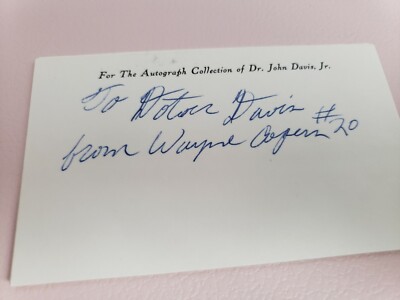 For The Autograph Collection of Dr. John Davis, Jr.
To Dotson Davis
from Wayne #20